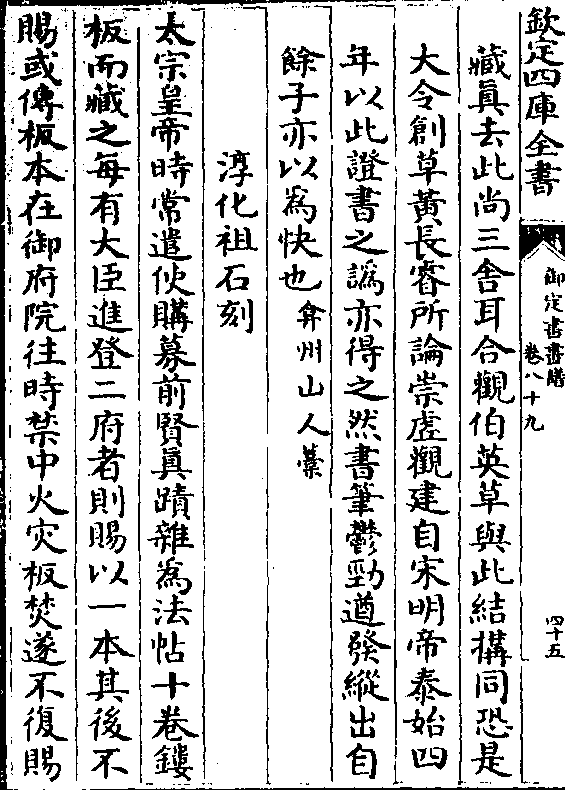 欽定四庫全書
御定書畫譜
卷八十九
四十五
藏眞去此尚三舎耳合觀伯英草與此結搆同恐是
大令創草黃長睿所論崇虚觀建自宋明帝泰始四
年以此證書之譌亦得之然書筆鬱勁遒發縱出自
餘子亦以為快也弇州山人藁
淳化祖石刻
太宗皇帝時常遣使購募前賢眞蹟雜為法帖十卷鏤
板而藏之每有大臣進登二府者則賜以一本其後不
賜或傳板本在御府院往時禁中火灾板焚遂不復賜